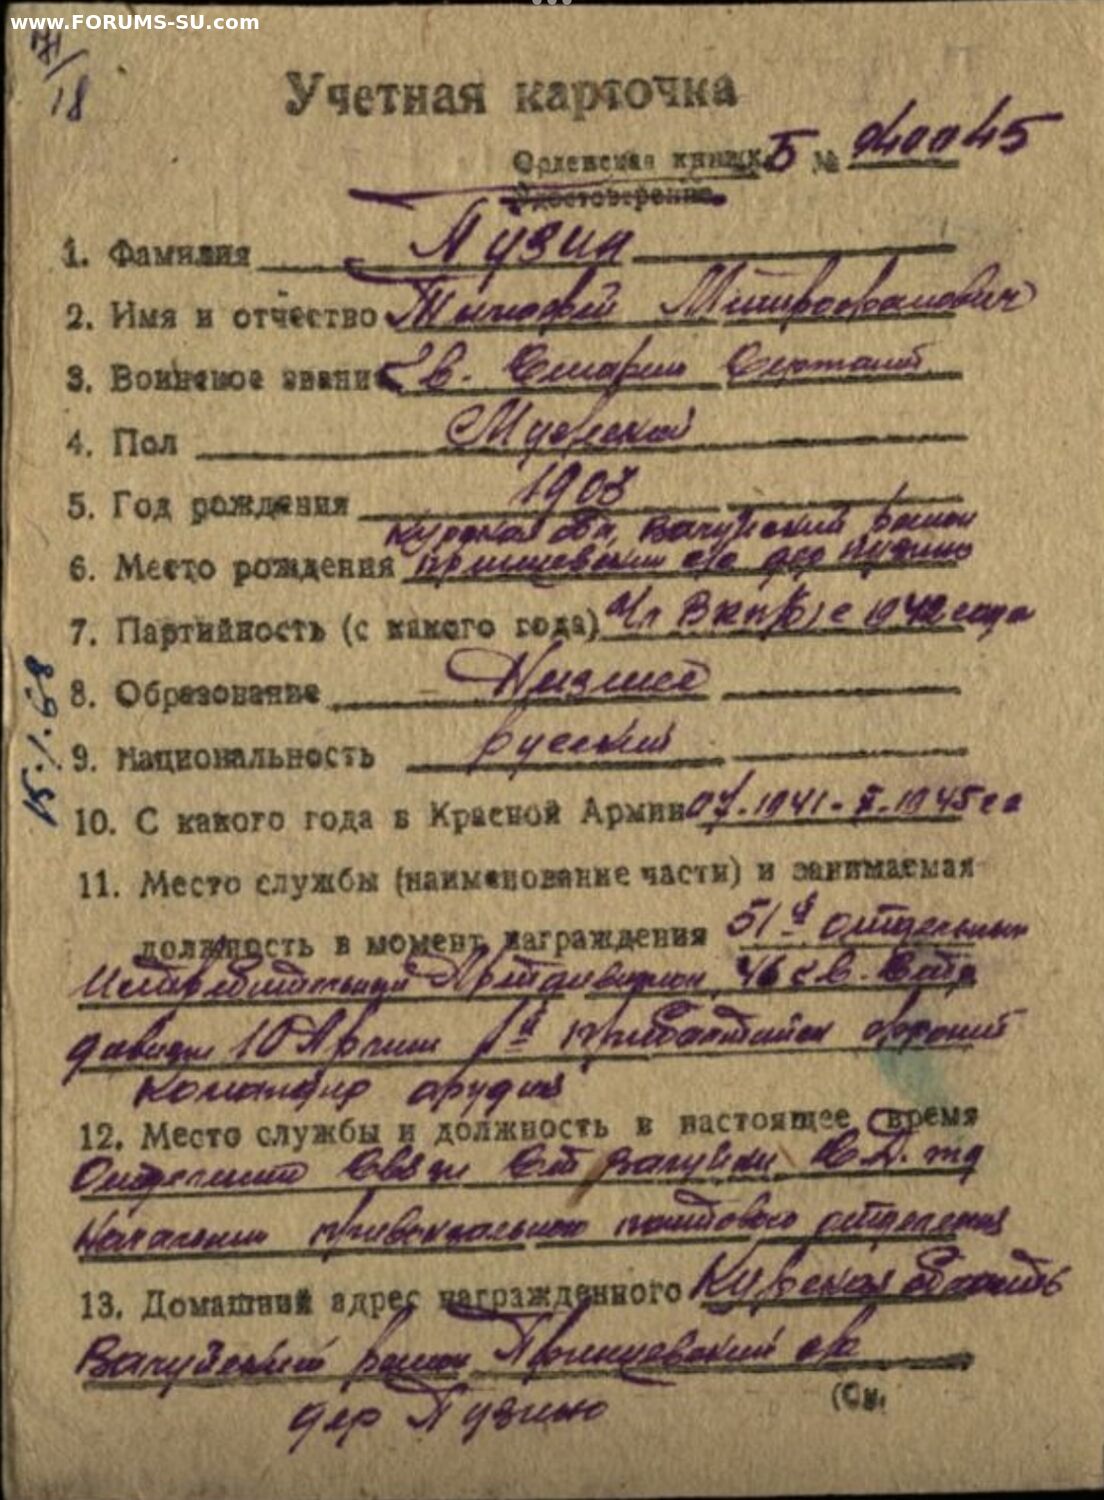 www.FORUMS-SU.com
18
Учетная карточка
Орденская книжка Б № 940045
Удостоверение
1. Фамилия Пузин
2. Имя и отчество Тимофей Митрофанович
3. Воинское звание Гв. Старший Сержант
4. Пол Мужской
5. Год рождения 1903
Курская обл, Валуйский район
6. Место рождения с/с дер Пузино
7. Партийность (с какого года) Чл ВКП(б) с 1942 года
8. Образование Низшее
9. Национальность русский
10. С какого года в Красной Армии 07.1941-X-1945 г
11. Место службы (наименование части) и занимаемая
должность в момент награждения 51й отдельный
Истребительный Артдивизион, 46 гв. Стр
дивизии 10 Армии 1й Прибалтийск фронт
Командир орудия
12. Место службы и должность в настоящее время
Отделение Связи Ст Валуйки жд
Начальник привокзального почтового отделения
13. Домашний адрес награжденного Курская область
Валуйский район с/с
дер Пузино
(См.
15.1.68